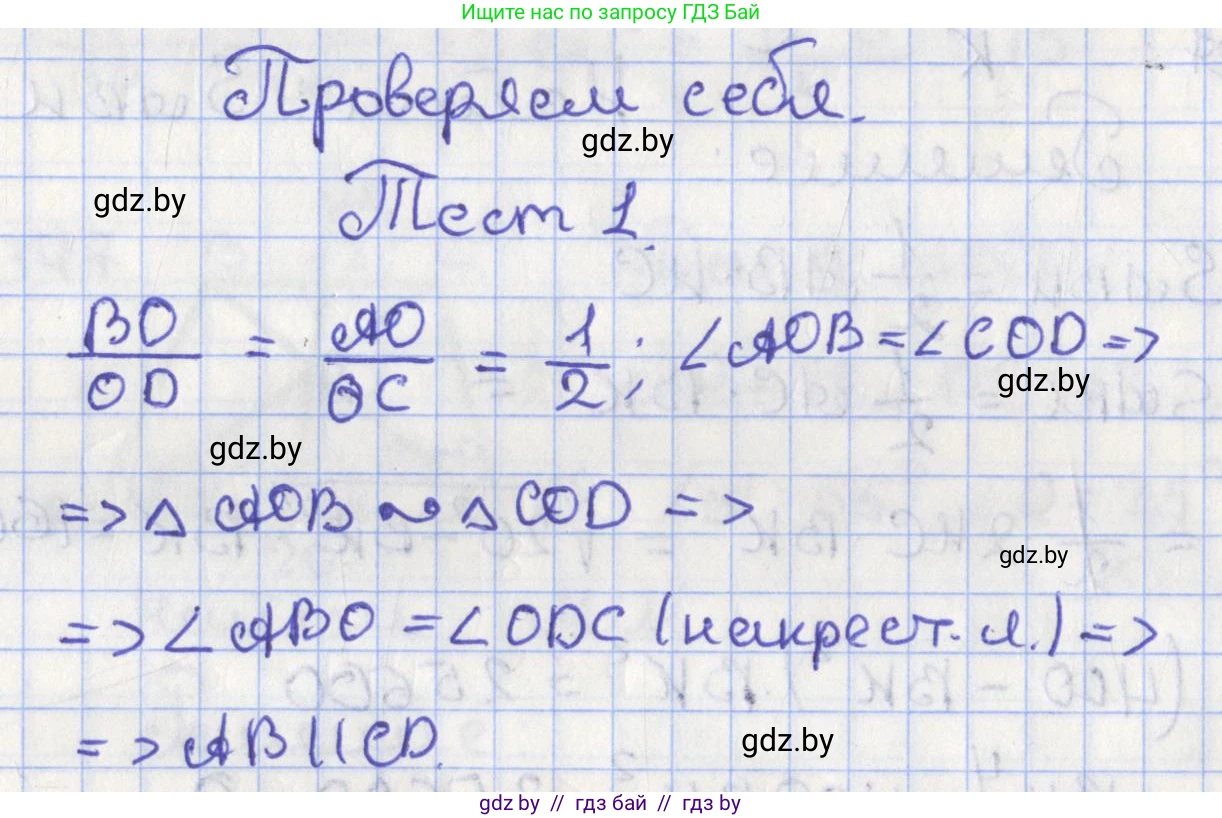 Ищите нас по запросу ГДЗ Бай
Проверяем себя.
gdz.by
gdz.by
Тест 1.
BO/OD = AO/OC = 1/2; ∠AOB = ∠COD =>
gdz.by
gdz.by
=> △ AOB ~ △ COD =>
gdz.by
=> ∠ABO = ∠ODC (накрест. л.) =>
=> AB || CD.
gdz.by
gdz.by // гдз бай // гдз by